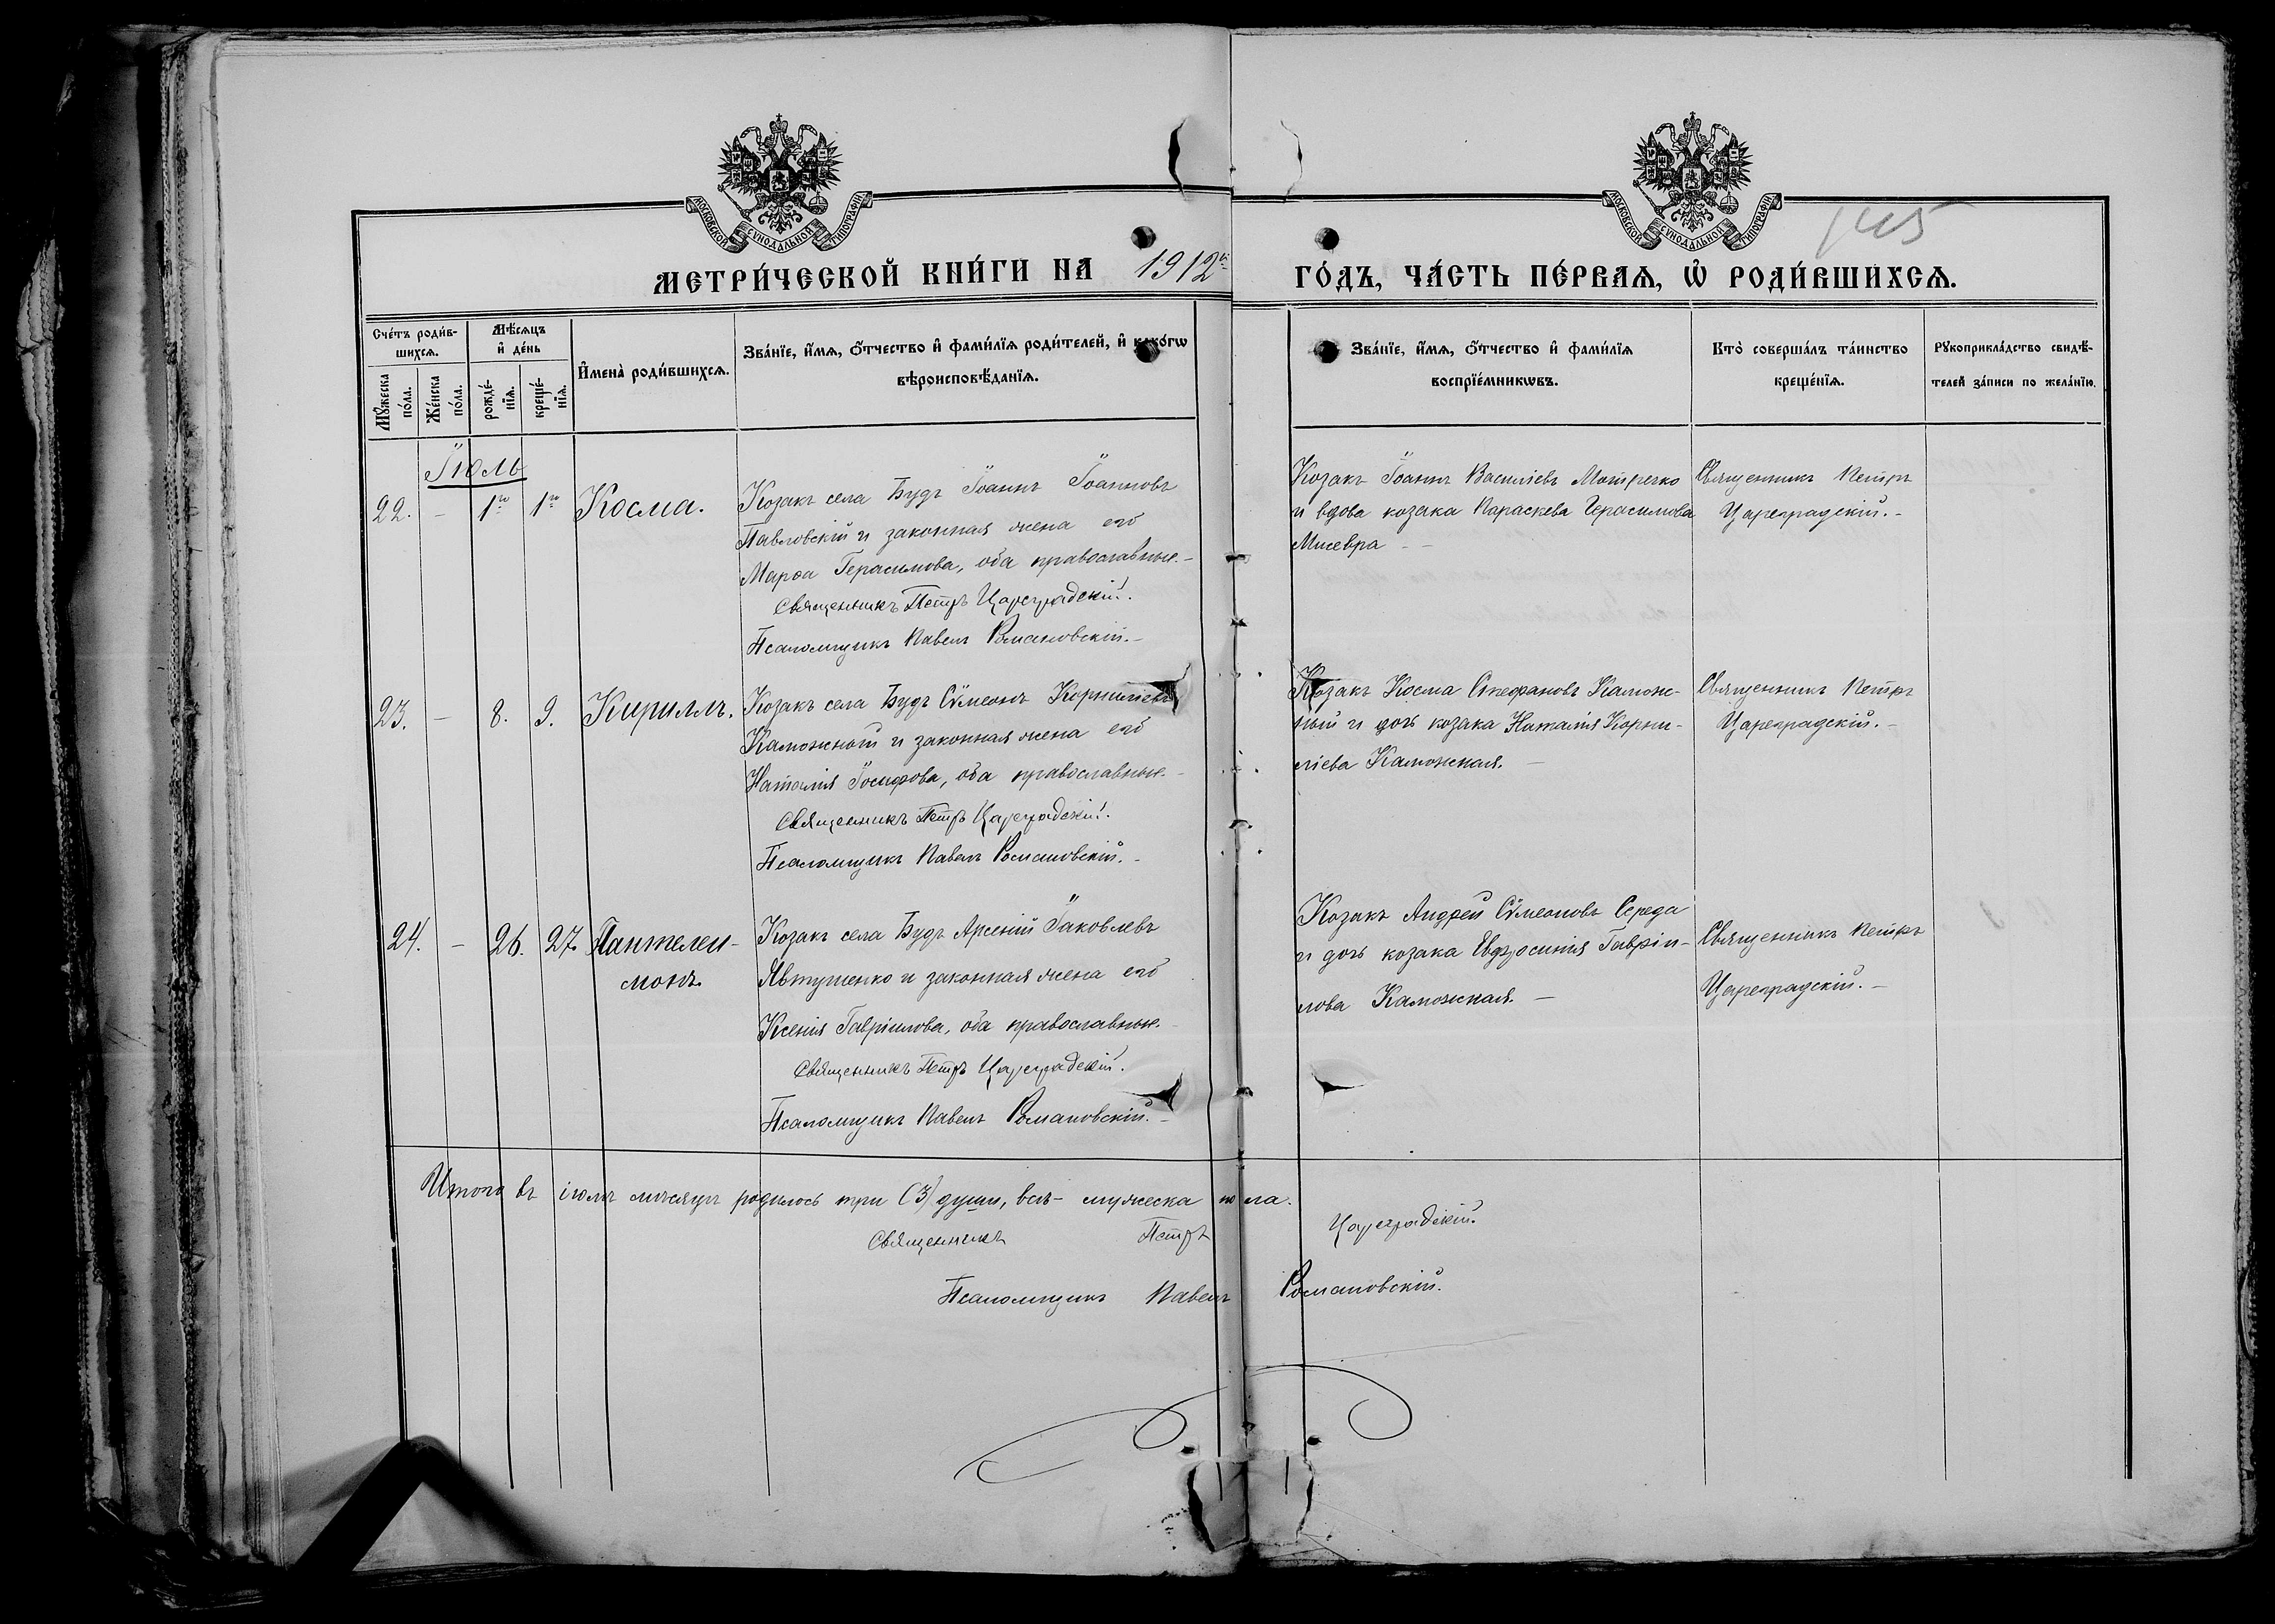 МОСКОВСКОЙ СѴНОДАЛЬНОЙ ТИПОГРАФІИ
МОСКОВСКОЙ СѴНОДАЛЬНОЙ ТИПОГРАФІИ
145
МЕТРИ́ЧЕСКОЙ КНИ́ГИ НА 1912й ГО́ДЪ, ЧА́СТЬ ПЕ́РВАѦ, Ѽ РОДИ́ВШИХСѦ.
Сче́тъ роди́в-
шихсѧ.
Мꙋ́жеска
по́ла.
Же́нска
по́ла.
Мѣ́сѧцъ
и҆ де́нь
рожде́-
нїѧ.
креще́-
нїѧ.
И҆мена̀ роди́вшихсѧ.
Зва́нїе, и҆́мѧ, ѻ҆́тчество и҆ фами́лїѧ роди́телей, и҆ како́гѡ
вѣроисповѣ́данїѧ.
Зва́нїе, и҆́мѧ, ѻ҆́тчество и҆ фами́лїѧ
воспрїе́мникѡвъ.
Кто̀ соверша́лъ та́инство
креще́нїѧ.
Рꙋкоприкла́дство свидѣ́-
телей за́писи по жела́нїю.
Іюль
22. – 1го 1го Косма.
Козакъ села Будъ Іоаннъ Іоанновъ
Павловскій и законная жена его
Марѳа Герасимова, оба православные.–
Священникъ Петръ Цареградскій.
Псаломщикъ Павелъ Романовскій.–
Козакъ Іоаннъ Василіевъ Мотречко
и вдова козака Параскева Герасимова
Мисевра – –
Священникъ Петръ
Цареградскій.–
23. – 8. 9. Кириллъ.
Козакъ села Будъ Сѵмеонъ Корниліевъ
Каможный и законная жена его
Наталія Іосифова, оба православные.–
Священникъ Петръ Цареградскій.
Псаломщикъ Павелъ Романовскій.–
Козакъ Косма Стефановъ Камож-
ный и дочь козака Наталія Корни-
ліева Каможная. –
Священникъ Петръ
Цареградскій.–
24. – 26. 27. Пантелеи-
монъ.
Козакъ села Будъ Арсеній Іаковлевъ
Явтушенко и законная жена его
Ксенія Гавріилова, оба православные.
Священникъ Петръ Цареградскій.
Псаломщикъ Павелъ Романовскій.–
Козакъ Андрей Сѵмеоновъ Середа
и дочь козака Евфросинія Гавріи-
лова Каможная. –
Священникъ Петръ
Цареградскій.–
Итого въ іюлѣ мѣсяцѣ родилось три (3) души, всѣ – мужеска пола.
Священникъ Петръ Цареградскій.
Псаломщикъ Павелъ Романовскій.